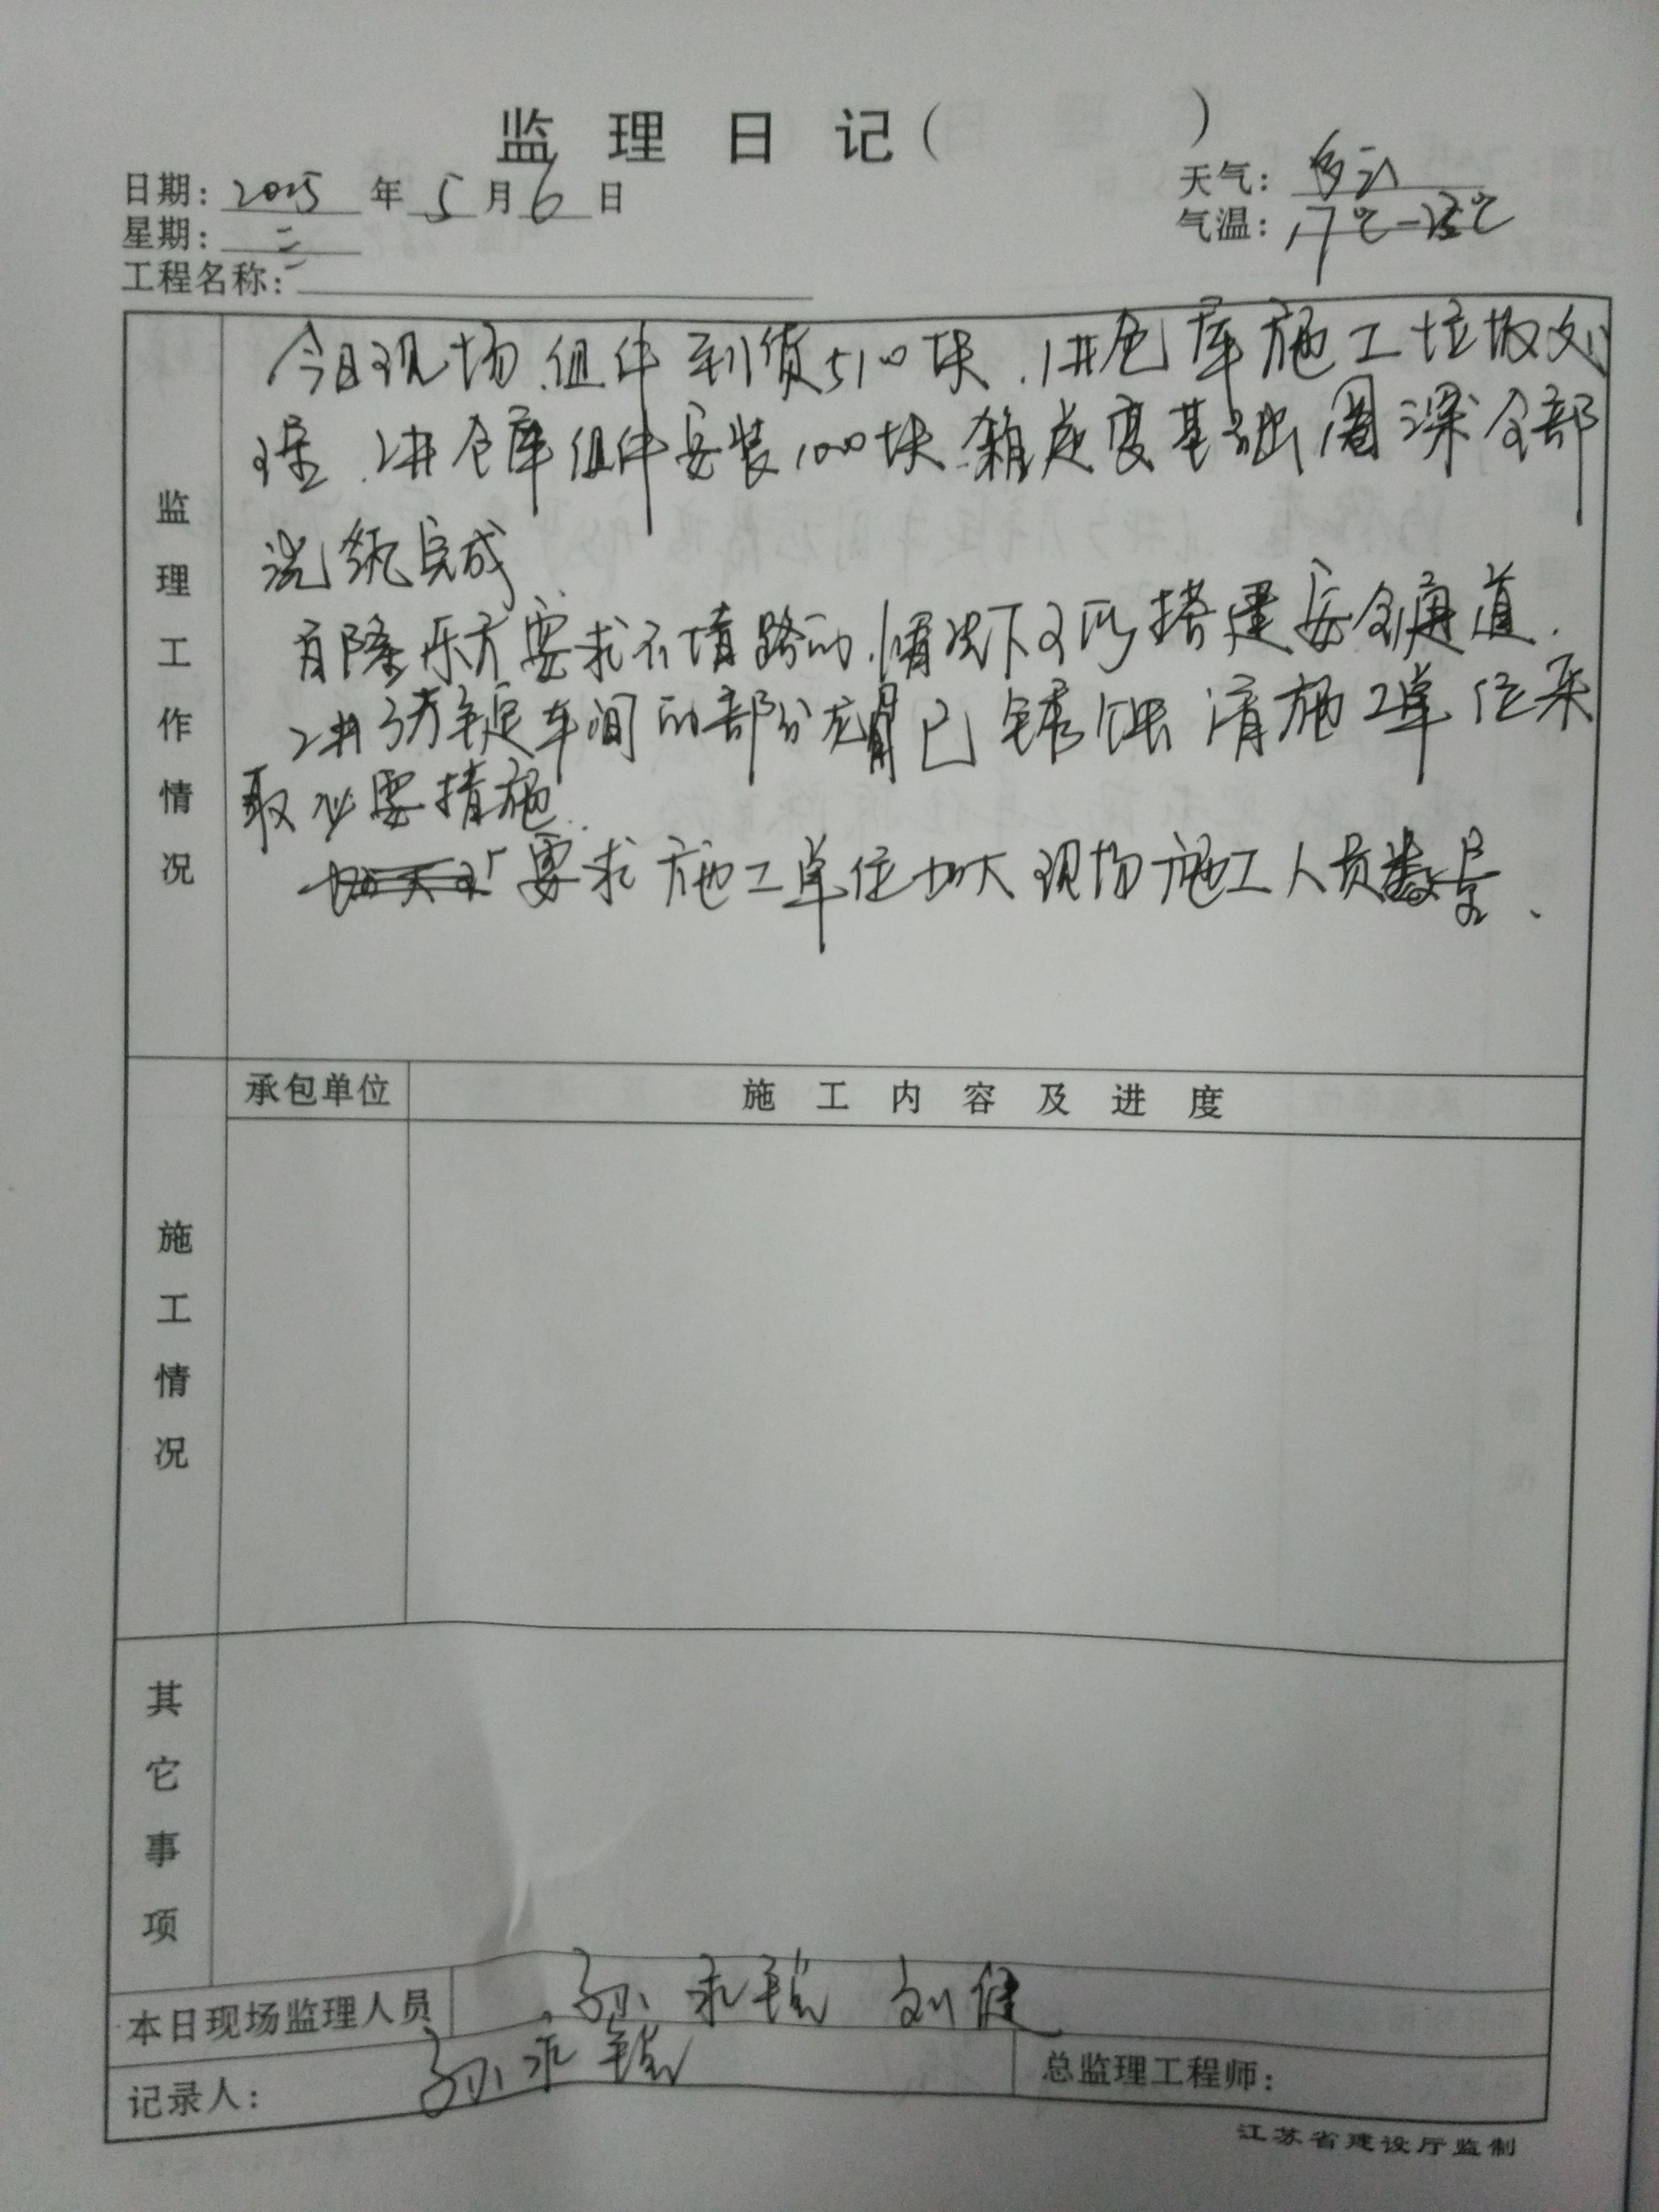 监理日记（　　）
日期：2025年5月6日
天气：多云
星期：二
气温：17℃-23℃
工程名称：
今日现场.组件到货510块.1#仓库施工垃圾处
理.2#仓库组件安装100块.箱逆变基础圈梁全部
浇筑完成
甲方要求不堵路的情况下可以搭建安全通道.
2#纺锭车间的部分龙骨已锈蚀请施工单位采
取必要措施.
要求施工单位加大现场施工人员数量.
监理工作情况
承包单位
施工内容及进度
施工情况
其它事项
本日现场监理人员
孙永 刘健
记录人：孙永
总监理工程师：
江苏省建设厅监制